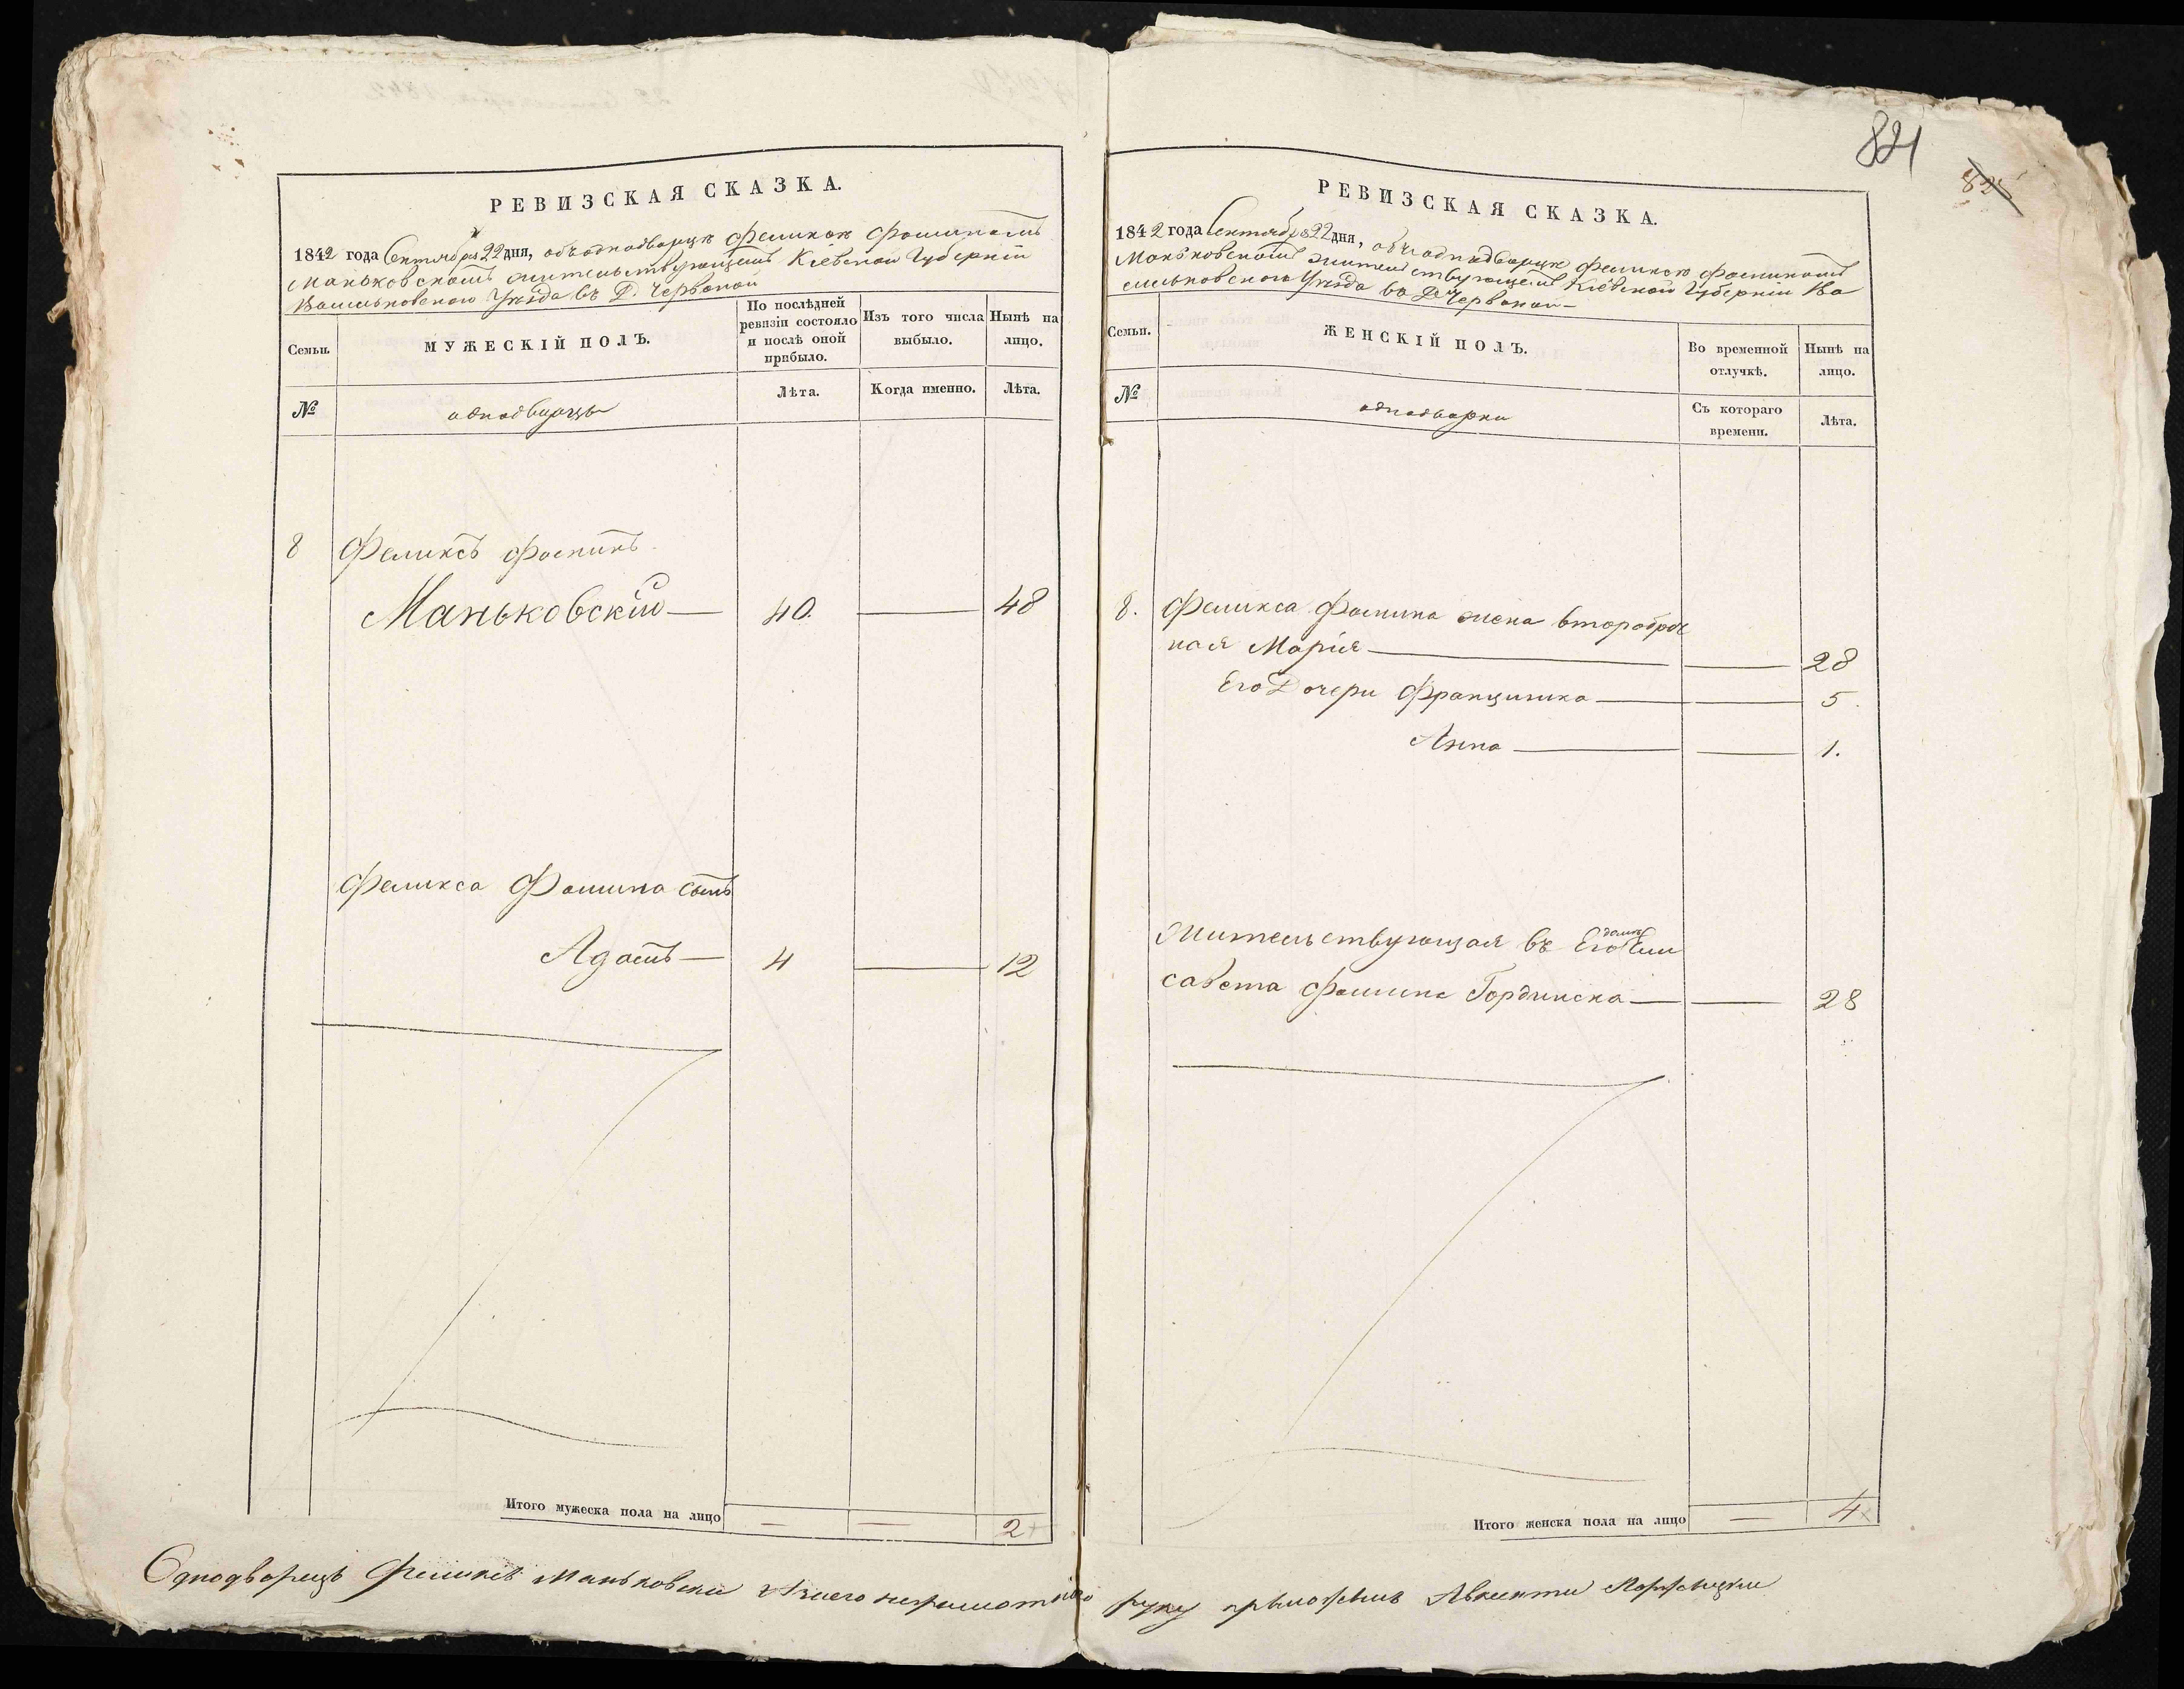 821
825
РЕВИЗСКАЯ СКАЗКА.
1842 года Сентября 22 дня, объ однодворцѣ Феликсѣ Фоминомъ
Маньковскомъ жительствующемъ Кіевской Губерніи
Васильковскаго Уѣзда въ Д. Червоной
Семьи.
МУЖЕСКІЙ ПОЛЪ.
По послѣдней ревизіи состояло и послѣ оной прибыло.
Изъ того числа выбыло.
Нынѣ на лицо.
№
однодворцы
Лѣта.
Когда именно.
Лѣта.
8 Феликсъ Фоминъ
Маньковскій — 40. — 48
Феликса Фомина сынъ
Адамъ — 4 — 12
Итого мужеска пола на лицо — — 2
РЕВИЗСКАЯ СКАЗКА.
1842 года Сентября 22 дня, объ однодворцѣ Феликсѣ Фоминомъ
Маньковскомъ жительствующемъ Кіевской Губерніи Ва
сильковскаго Уѣзда въ Д. Червоной —
Семьи.
ЖЕНСКІЙ ПОЛЪ.
Во временной отлучкѣ.
Нынѣ на лицо.
№
однодворки
Съ котораго времени.
Лѣта.
8. Феликса Фомина жена второбрач
ная Марія — — 28
Его Дочери Францишка — — 5.
Анна — — 1.
Жительствующая въ Его домѣ Ели
савета Фомина Гординска — — 28
Итого женска пола на лицо — 4
Однодворецъ Феликсъ Маньковски а за него неграмотного руку приложилъ